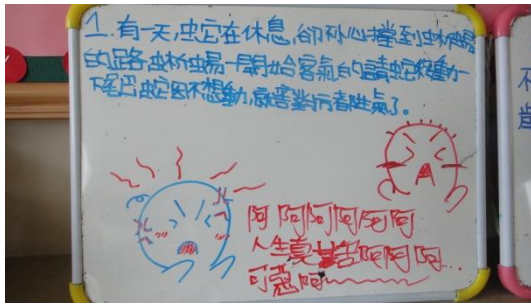 1. 有一天,蛇在休息,卻不小心擋到蜥蜴
的路,蜥蜴一開始客氣的請蛇移動一
下尾巴,蛇因不想動,就
生氣了。
阿阿阿阿阿阿
人生真甘苦阿阿阿...
可惡阿